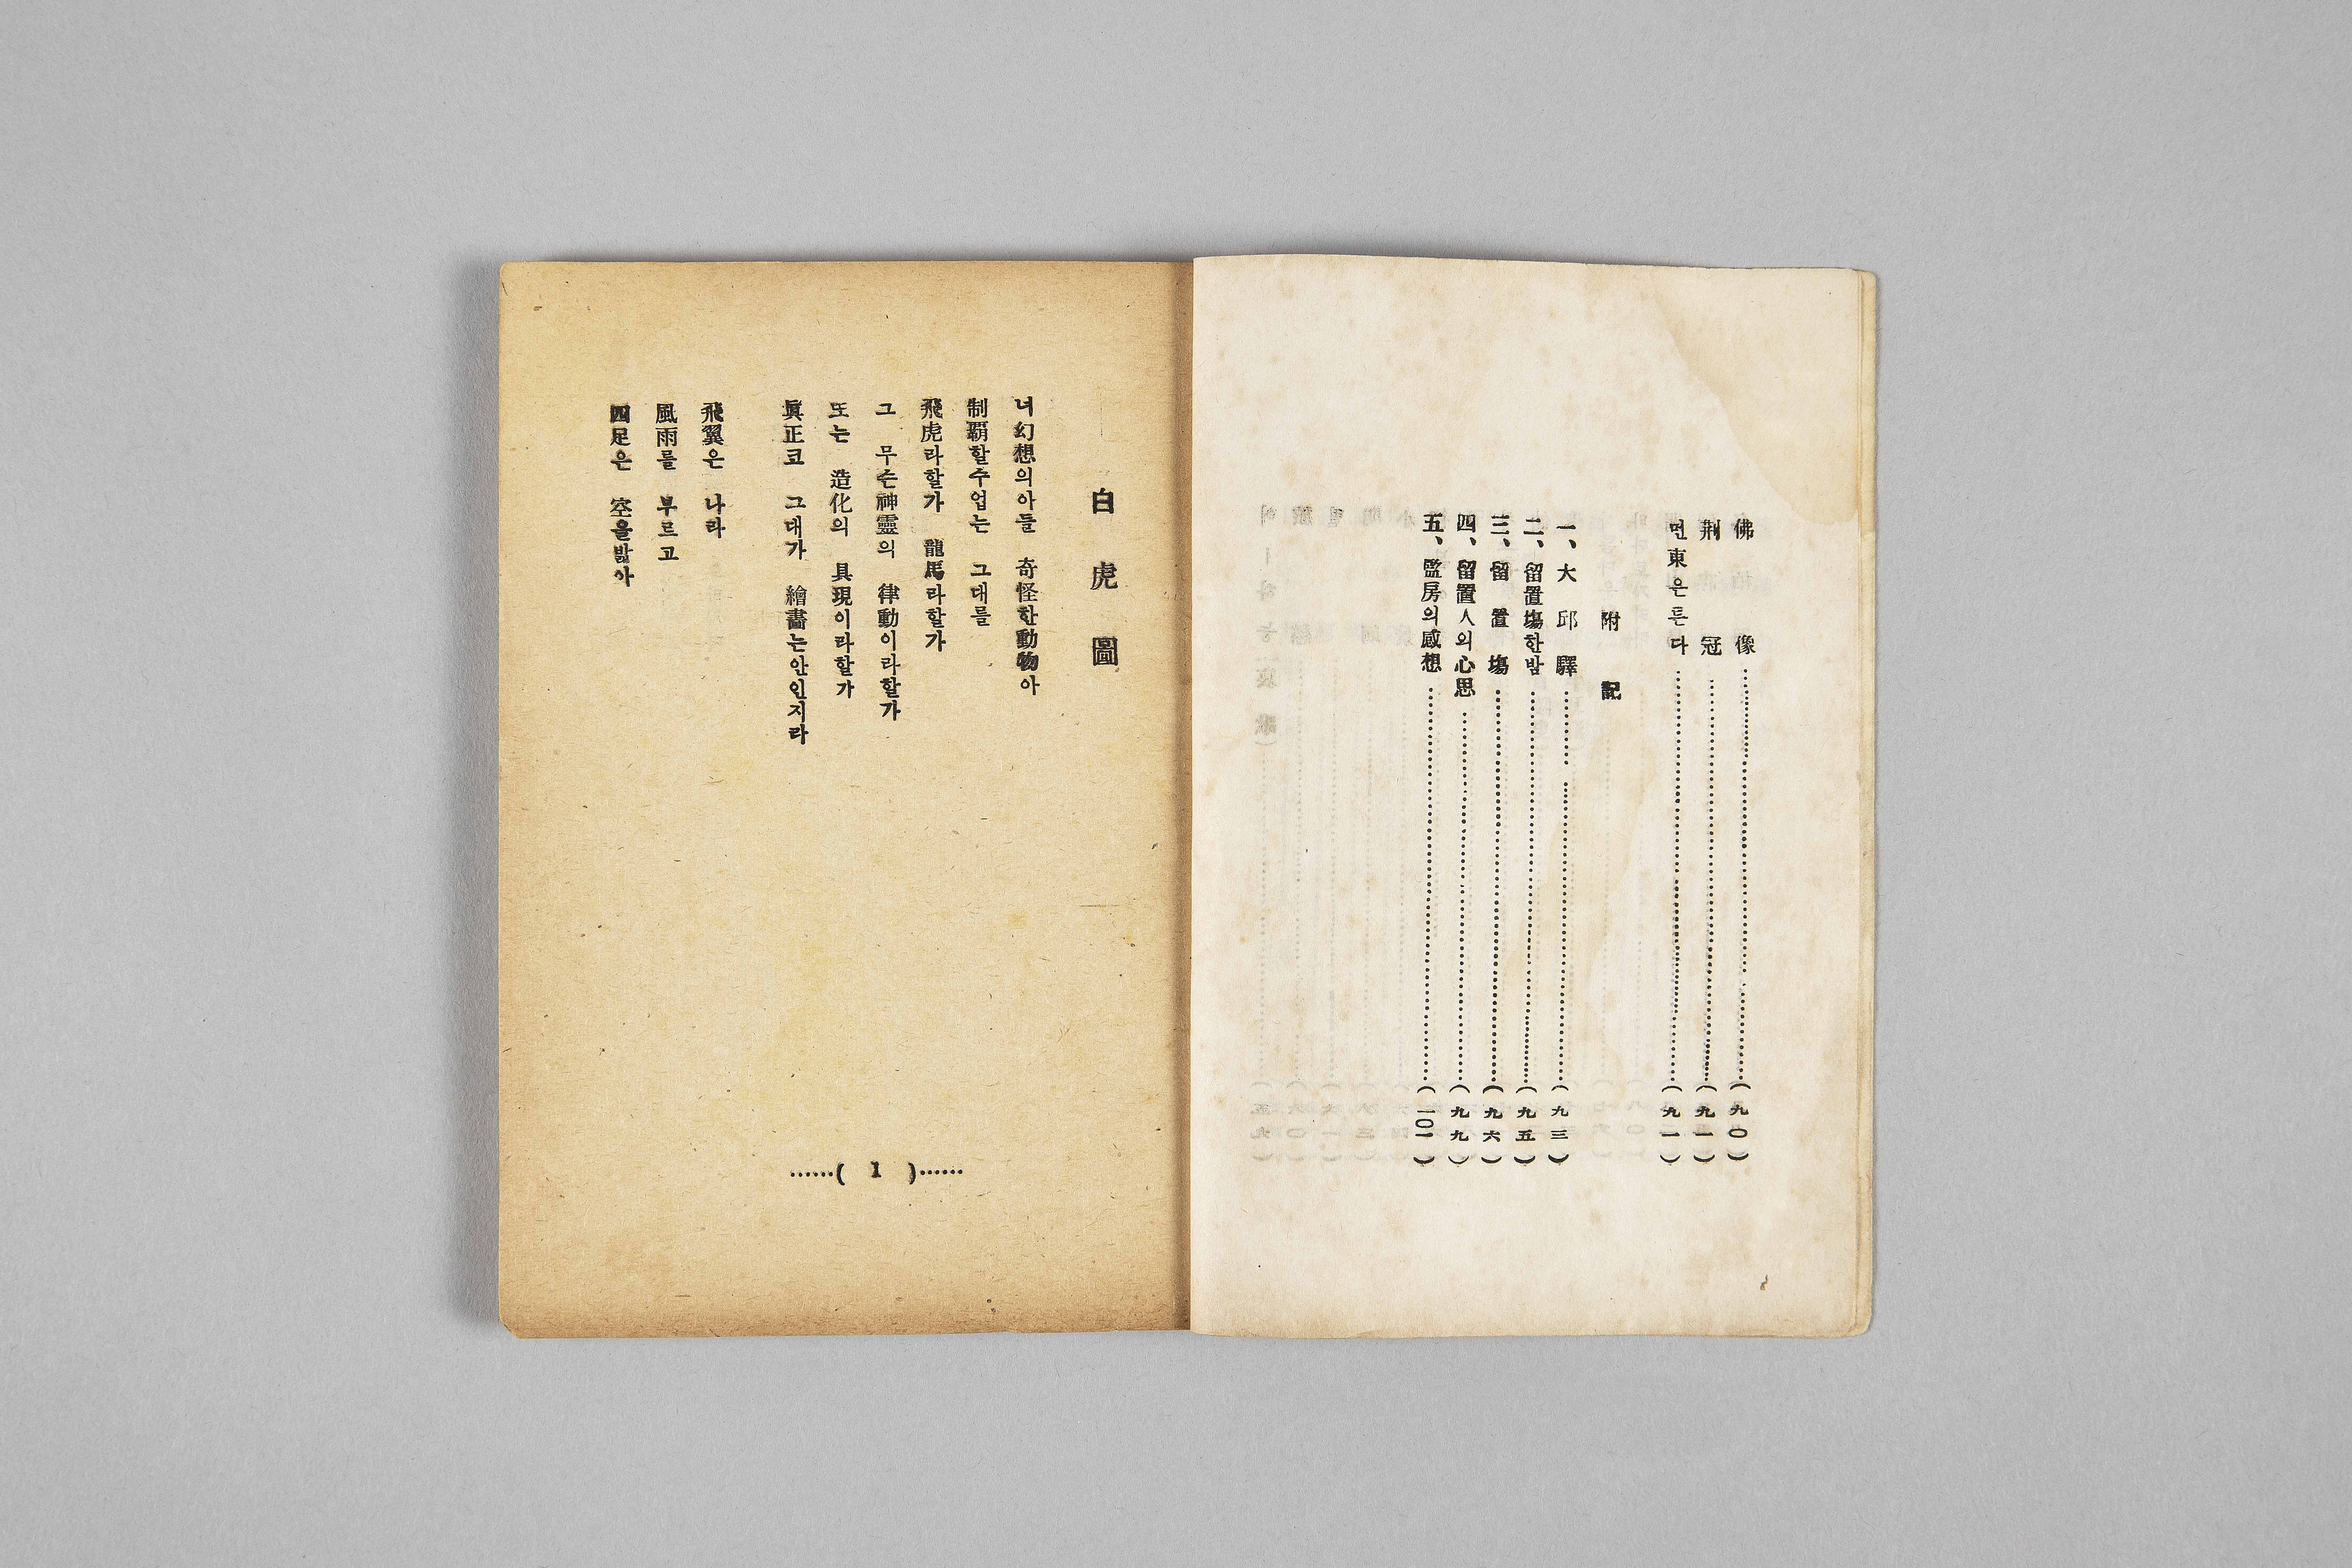 佛像……(九〇)
荆冠……(九一)
먼東은튼다……(九一)
附記
一、大邱驛……(九三)
二、留置場한밤……(九五)
三、留置場……(九六)
四、留置人의心思……(九九)
五、監房의感想……(一〇一)
白虎圖
너幻想의아들 奇怪한動物아
制覇할수업는 그대를
飛虎라할가 龍馬라할가
그 무슨神靈의 律動이라할가
또는 造化의 具現이라할가
眞正코 그대가 繪畵는안인지라
飛翼은 나라
風雨를 부르고
四足은 空을밟아
……( 1 )……